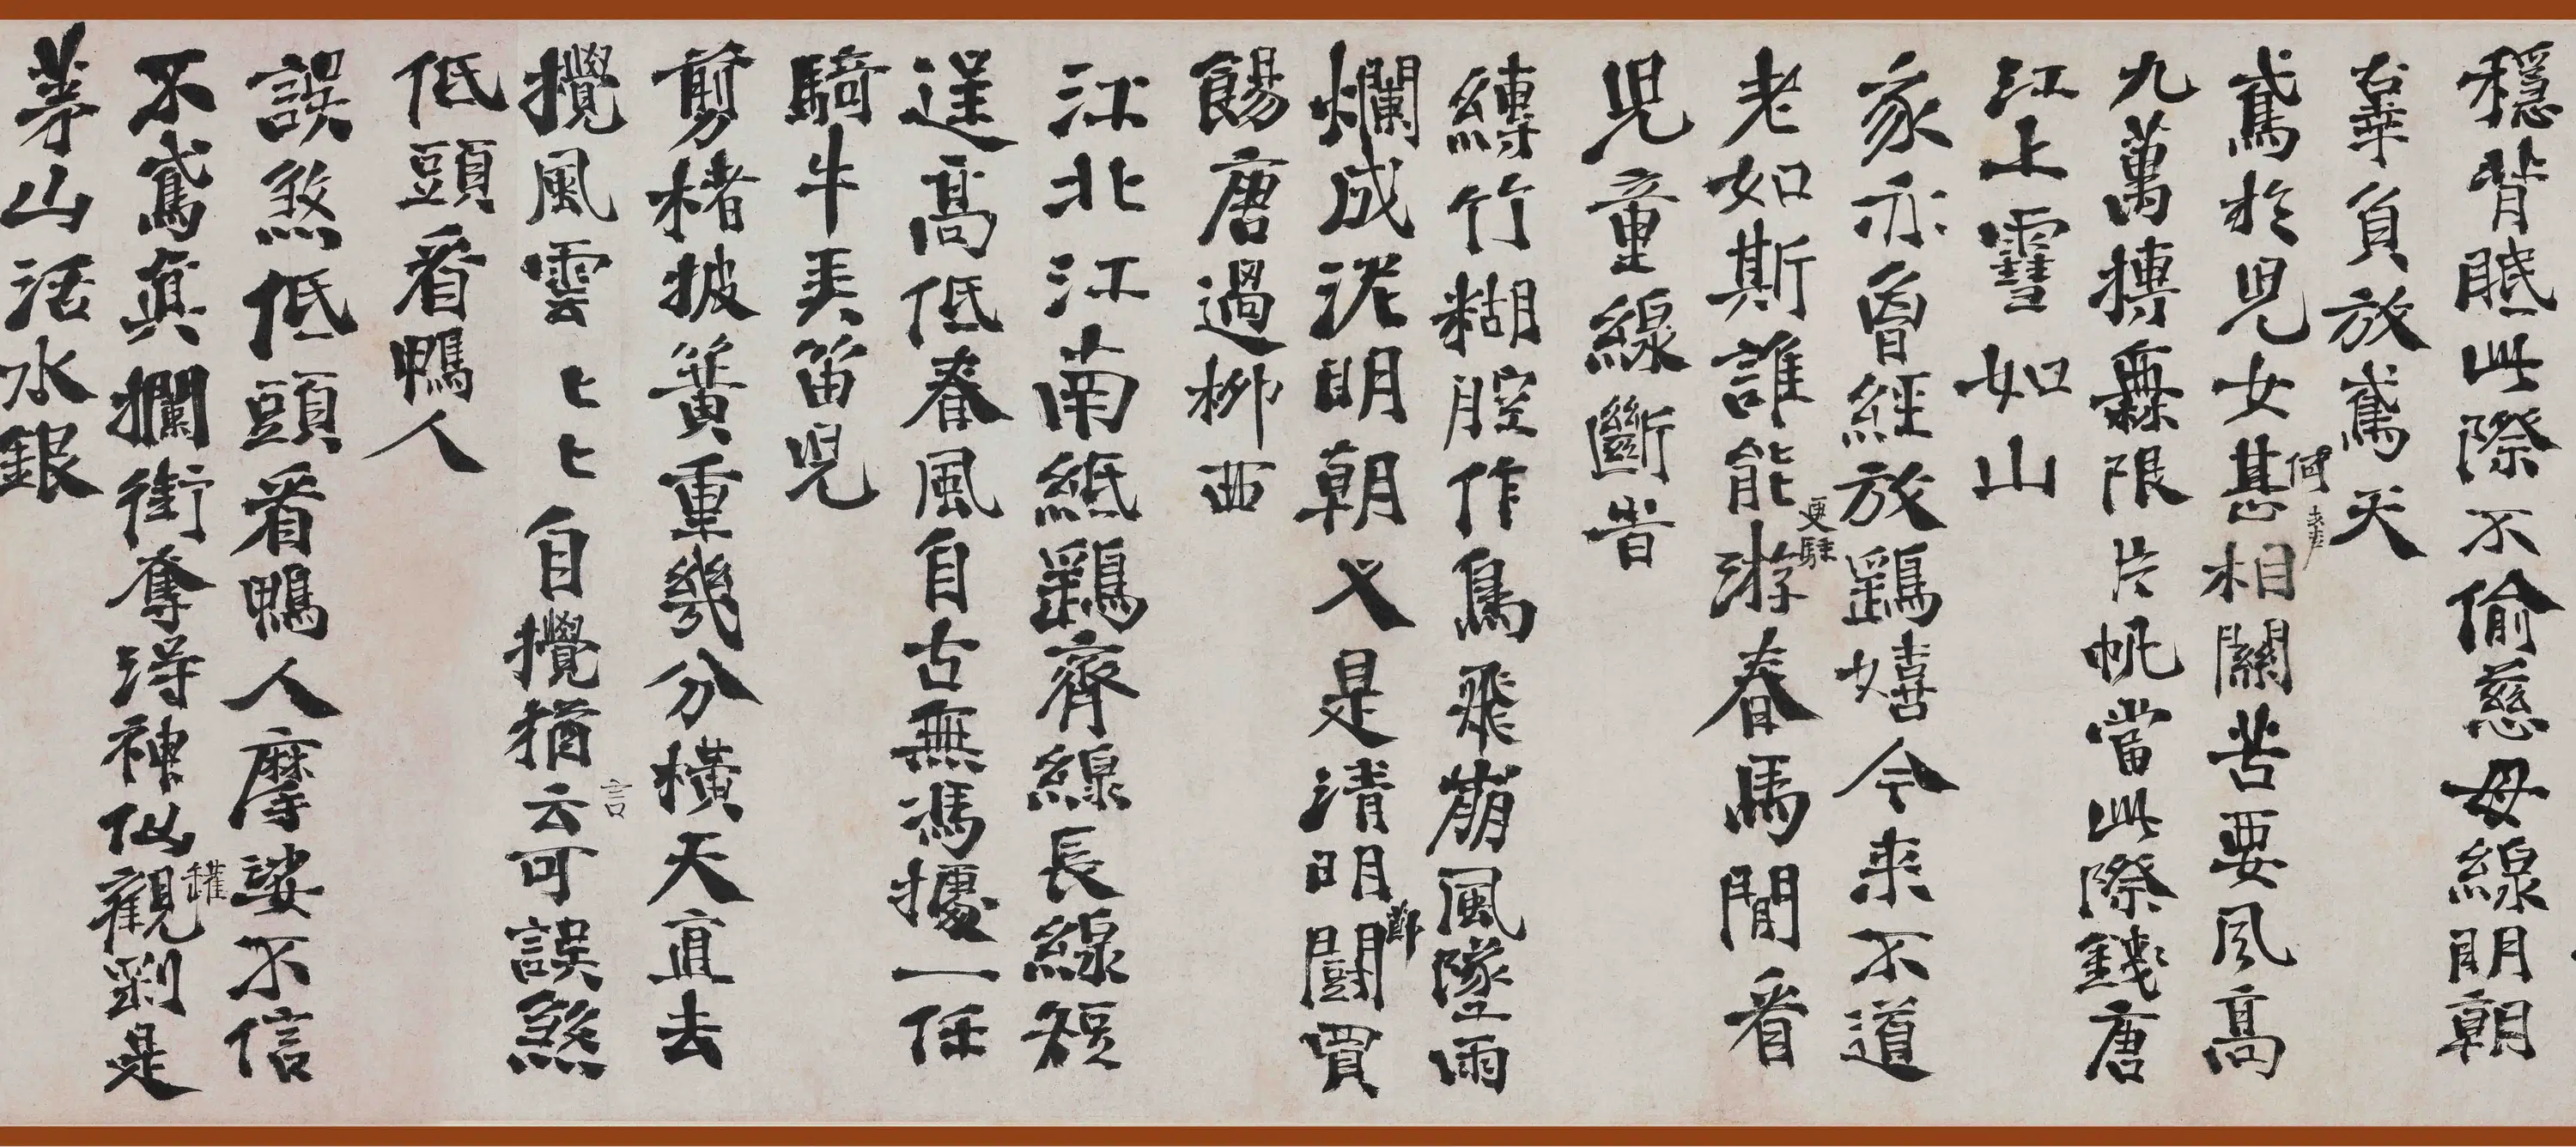 穩背眡此際不偷慈母線明朝
辜負放鳶天
鳶於兒女甚何相關苦要風高
九萬摶限片帆當此際錢唐
江上雪如山
家亦曾經放鷂嬉今来不道
老如斯誰能更駐游春馬閒看
兒童線斷旹
縳竹糊腔作鳥飛崩風墜雨
爛成泥明朝又是清明節鬪買
餳唐過柳西
江北江南紙鷂齊線長線短
逞高低春風自古無馮據一任
騎牛弄笛兒
剪楮披簧重幾分橫天直去
攪風雲匕匕自攪猶云言可誤煞
低頭看鴨人
誤煞低頭看鴨人摩挲不信
不鳶真攔街奪得神仙觀罐到是
茅山活水銀